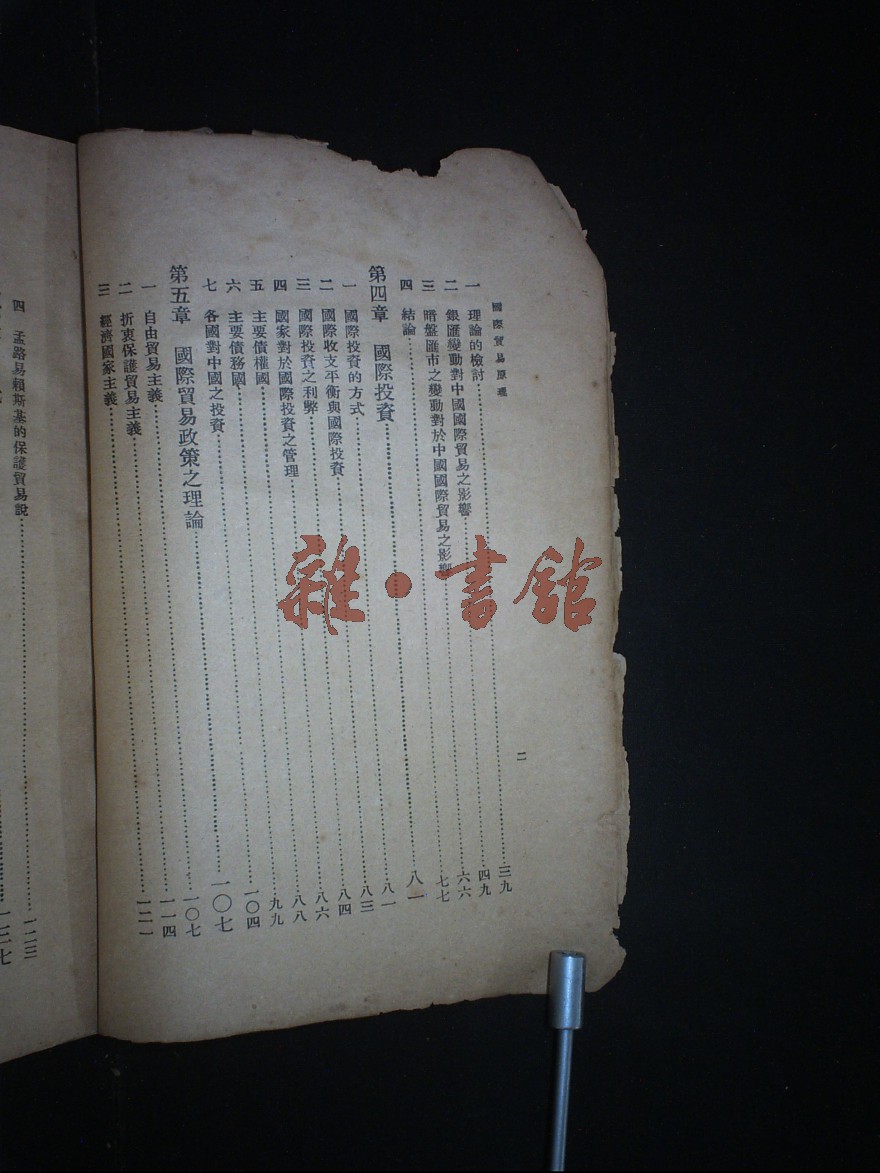 國際貿易原理 二
一 理論的檢討 三九
二 銀匯變動對中國國際貿易之影響 四九
三 暗盤匯市之變動對於中國國際貿易之影響 六六
四 結論 七七
第四章 國際投資 八一
一 國際投資的方式 八一
二 國際收支平衡與國際投資 八三
三 國際投資之利弊 八四
四 國家對於國際投資之管理 八六
五 主要債權國 八八
六 主要債務國 九九
七 各國對中國之投資 一〇四
第五章 國際貿易政策之理論 一〇七
一 自由貿易主義 一〇七
二 折衷保護貿易主義 一一四
三 經濟國家主義 一二一
四 孟路易賴斯基的保護貿易說 一二三
一二七
雜·書館